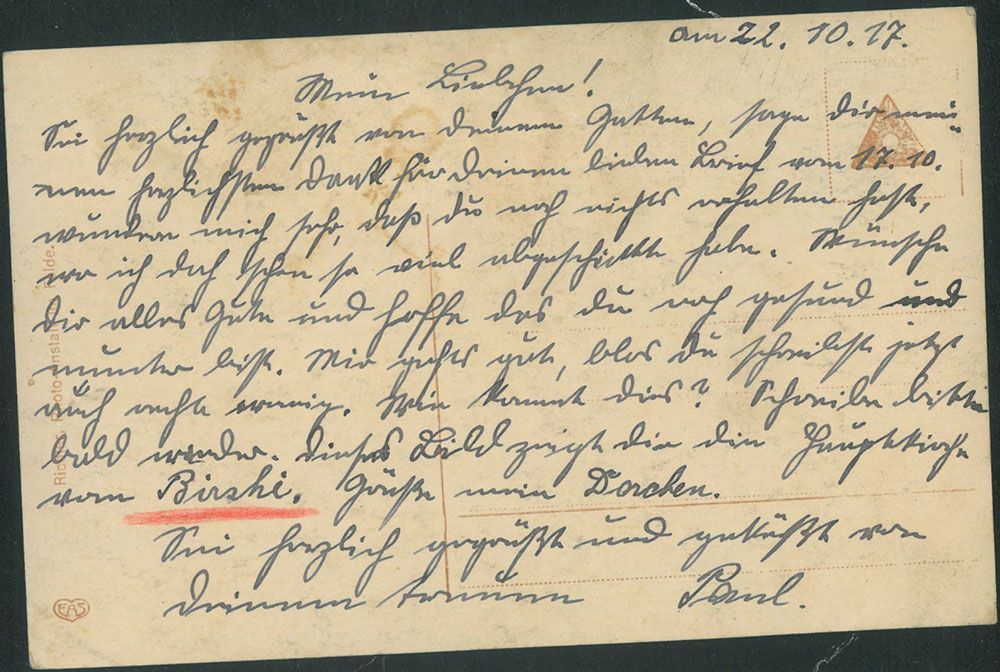 am 22. 10. 17.
Mein Liebchen!
Sei herzlich gegrüßt von deinem Gatten, sage dir mei-
nen herzlichsten Dank für deinen lieben Brief vom 17. 10.
wundere mich sehr, daß du noch nichts erhalten hast,
wo ich doch schon so viel abgeschickt habe. Wünsche
dir alles Gute und hoffe das du noch gesund und
munter bist. Mir gehts gut, blos du schreibst jetzt
auch recht wenig. Wie kommt dies? Schreibe bitte
bald wieder. Dieses Bild zeigt dir die Hauptkirche
vom Birshi. Grüße mein Dorchen.
Sei herzlich gegrüßt und geküßt von
deinem treuen Paul.
EAS